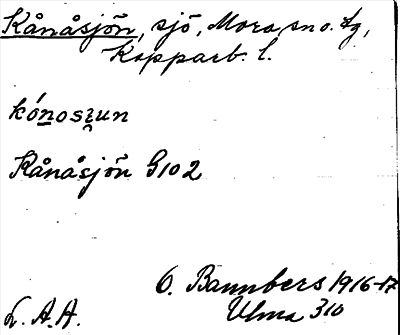 Kånåsjön, sjö, Mora sn o. tg,
Kopparb. l.
kónosꭍun
Kånåsjön G102
O. Bannbers 1916-17
Ulma 310
L. A. A.